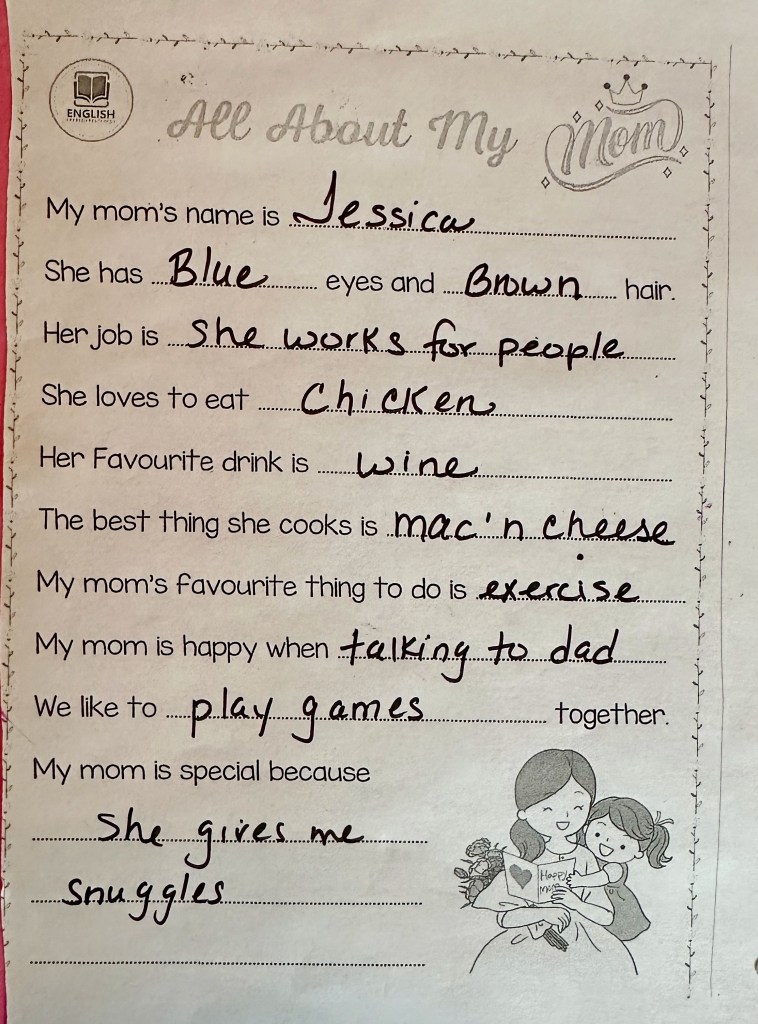 ENGLISH
All About My Mom
My mom's name is Jessica
She has Blue eyes and Brown hair.
Her job is She works for people
She loves to eat Chicken
Her Favourite drink is wine
The best thing she cooks is mac'n cheese
My mom's favourite thing to do is exercise
My mom is happy when talking to dad
We like to play games together.
My mom is special because
She gives me
snuggles
Happy